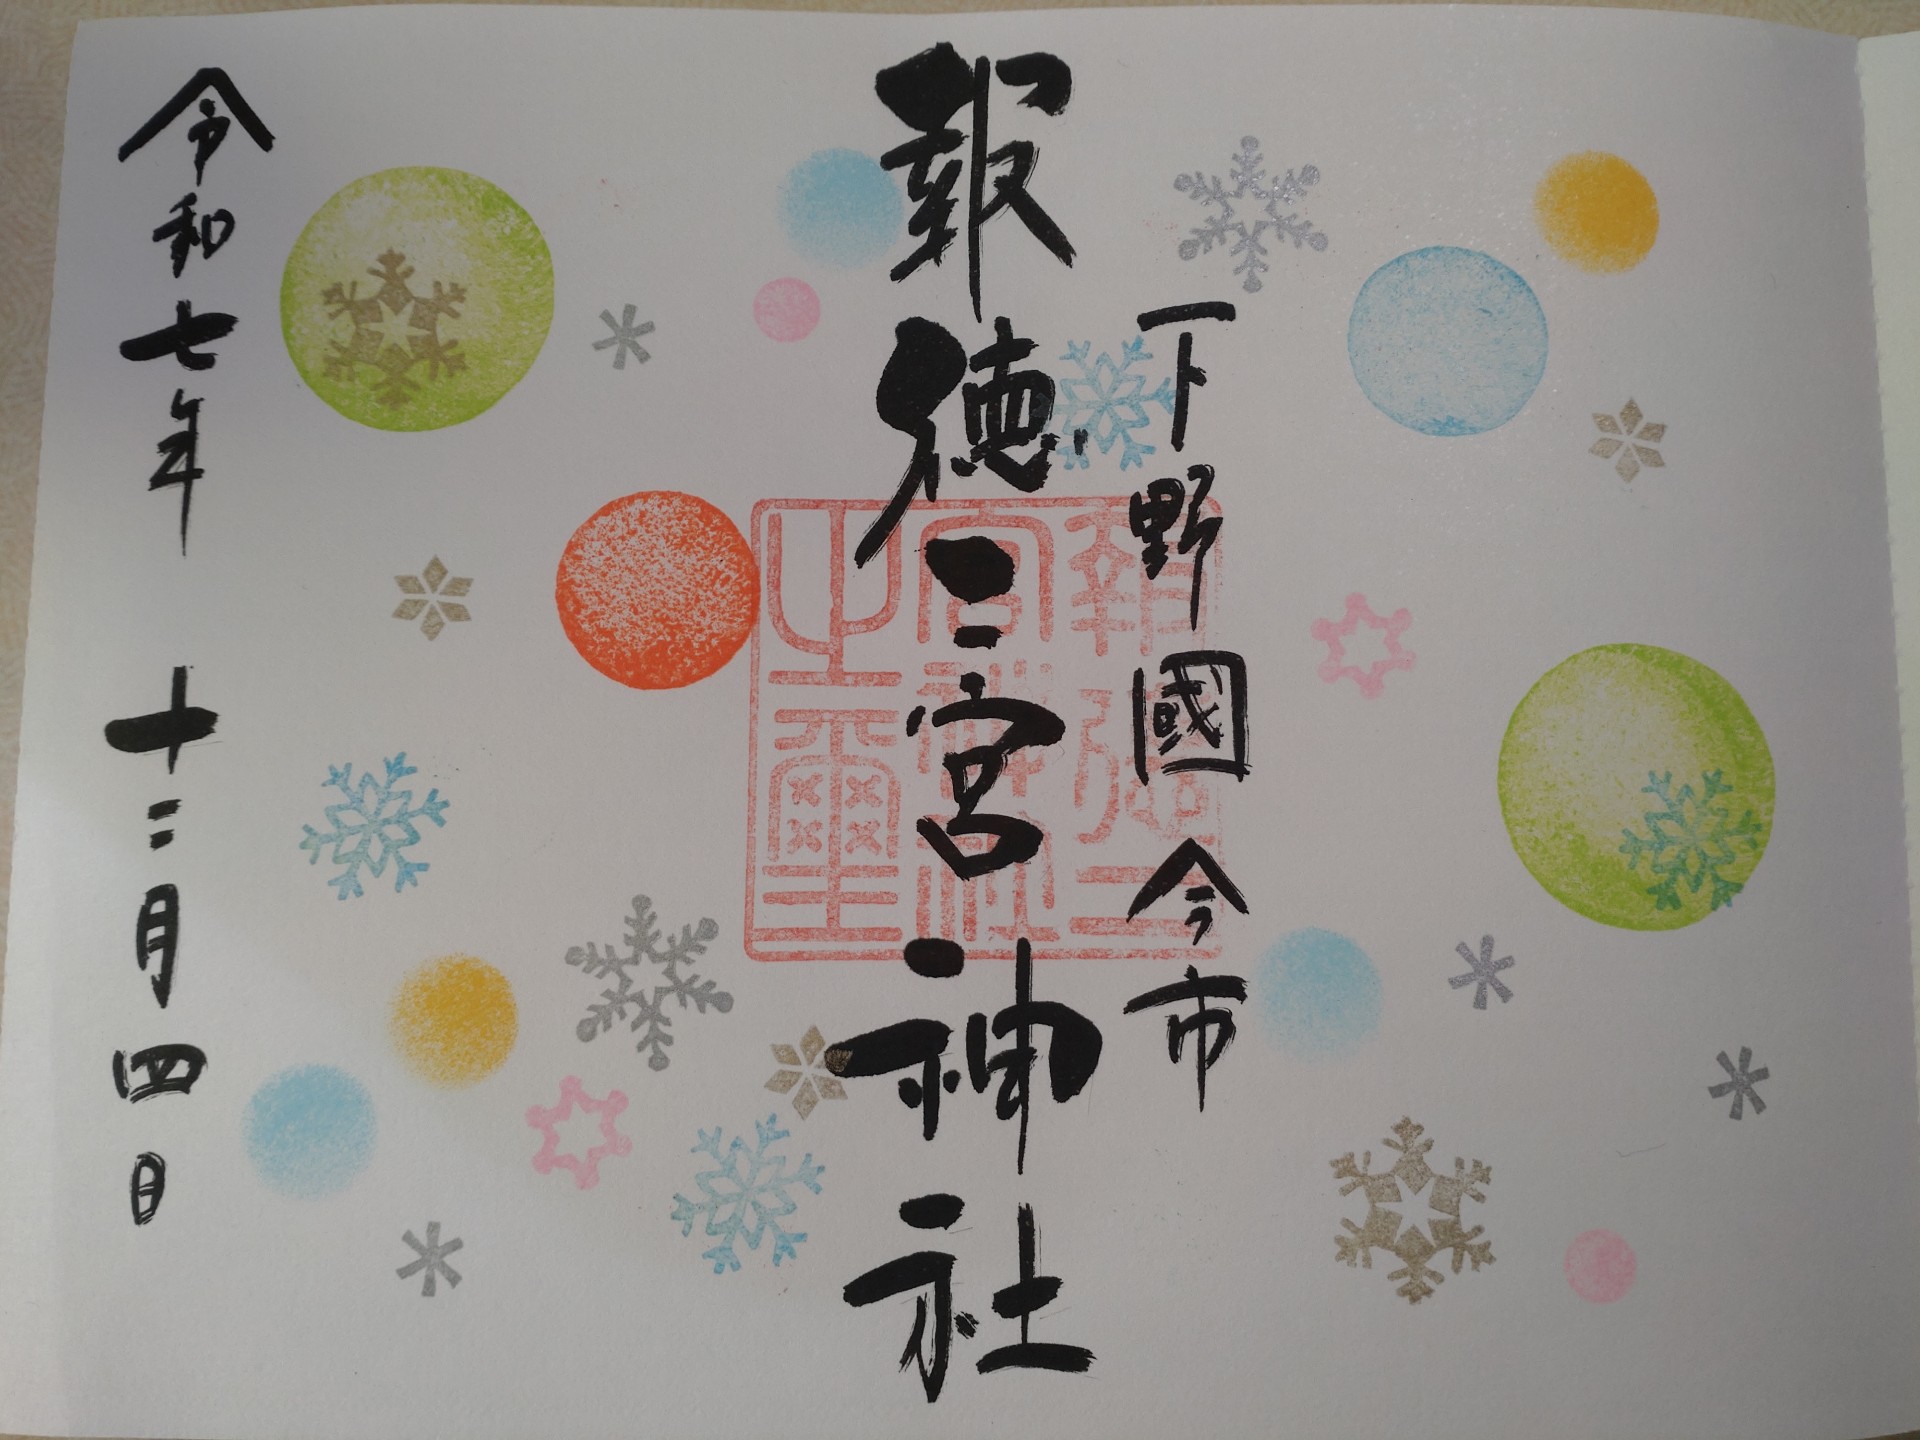 下野國今市
報徳二宮神社
令和七年 十二月四日
報徳二
宮神社
之璽